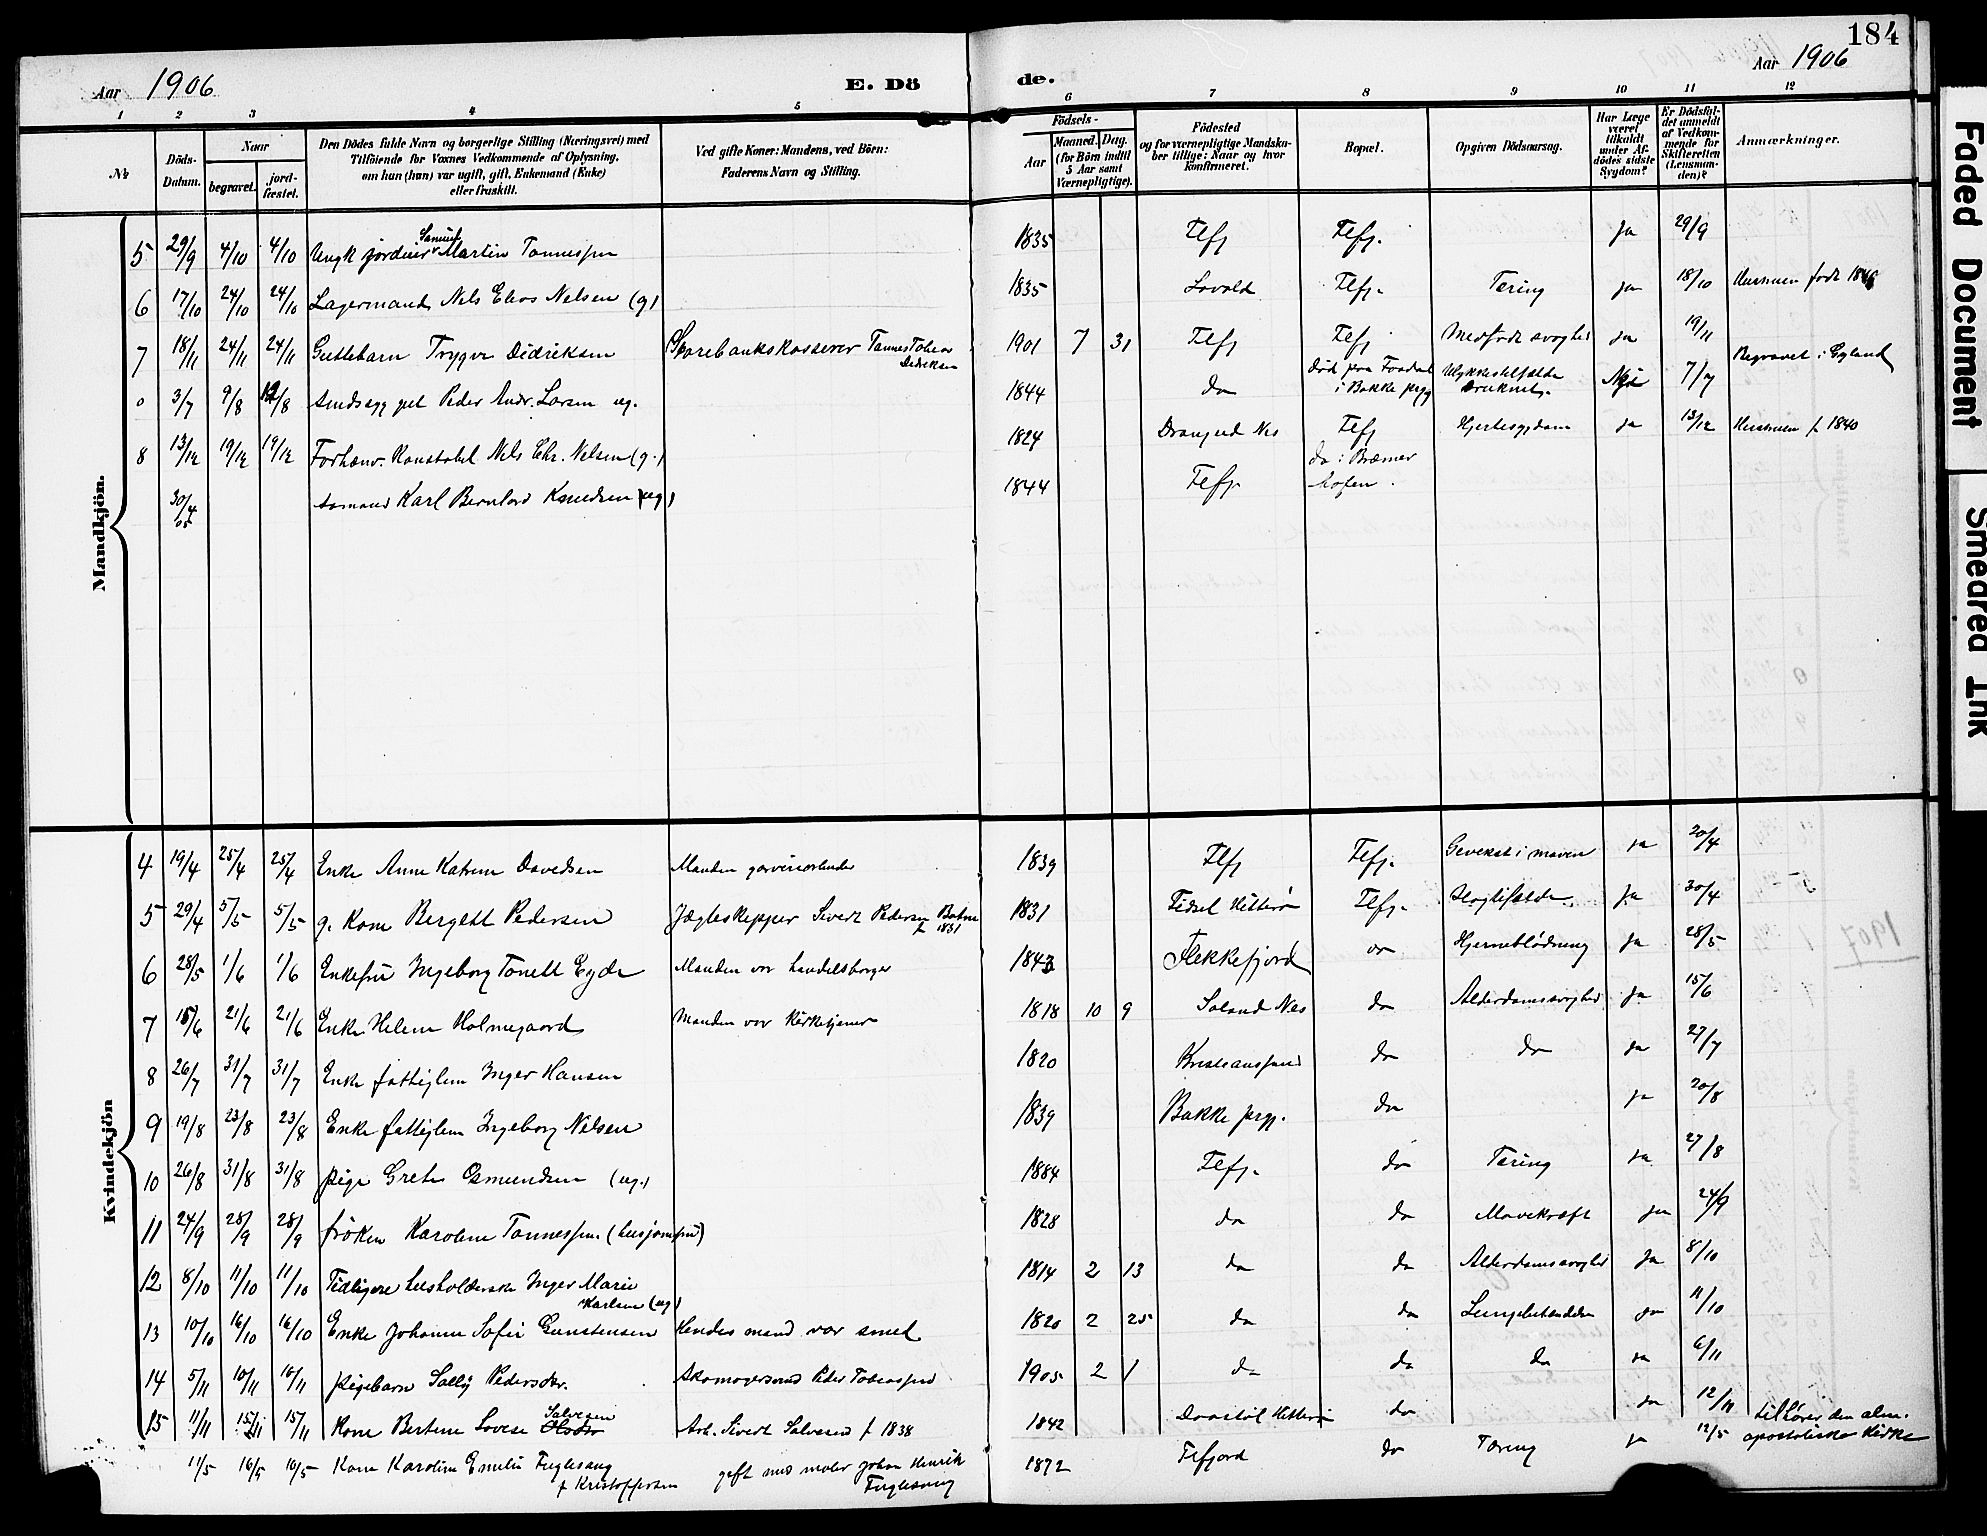 184
Aar 1906
E. Dö de.
Aar 1906
1 2 3 4 5 6 7 8 9 10 11 12
№
Döds-Datum.
Naar
begravet.
jord-fæstet.
Den Dödes fulde Navn og borgerlige Stilling (Næringsvei) med
Tilföiende for Voxnes Vedkommende af Oplysning,
om han (hun) var ugift, gift, Enkemand (Enke)
eller fraskilt.
Ved gifte Koner: Mandens, ved Börn:
Faderens Navn og Stilling.
Födsels-
Aar
Maaned. Dag.
(for Börn indtil
5 Aar samt
Værnepligtige).
Födested
og for værnepligtige Mandska-
ber tillige: Naar og hvor
Konfirmeret.
Bopæl.
Opgiven Dödsaarsag.
Har Læge
været
tilkaldt
under Af-
dödes sidste
Sygdom?
Er Dödsfal-
det anmeldt
af Vedkom-
mende for
Skifteretten
(Lensman-
den)?
Anmærkninger.
Mandkjön.
5 29/9 4/10 4/10 Ungk. Samuel Martin Tønnessen 1835 Flfj Flfj. ja 29/9
6 17/10 24/10 24/10 Lagermand Nels Elias Nelsen (g) 1835 Lavold Flfj. Tæring ja 18/10 Hustruen født
7 18/11 24/11 24/11 Guttebarn Trygve Didriksen Sparebankskasserer Tønnes Tobias Didriksen 1901 7 31 Flfj Flfj Medfødt svaghed ja 19/11 Begravet i Gyland
0 3/7 9/8 12/8 Peder Andr. Larsen ug. 1844 do død paa i Bakke prgj Ulykkestilfælde druknet. Nei 7/7
8 13/12 19/12 19/12 Forhenv. Konstabel Nels Chr. Nelsen (g.) 1824 Nes Flfj Hjertesygdom ja 13/12 Hustruen f 1840
30/4 05 Karl Bernhard Knudsen (ug) 1844 Flfj. do i Bremer hafen.
Kvindekjön
4 19/4 25/4 25/4 Enke Anne Katrine Davedsen Manden garveriarbeider 1839 Flfj Flfj. Gevekst i maven ja 20/4
5 29/4 5/5 5/5 g. Kone Bergett Pedersen Jægteskipper Sivert Pedersen f 1831 1831 Fidsel Hitterø Flfj. Slagtilfælde ja 30/4
6 28/5 1/6 1/6 Enkefru Ingeborg Tonett Eyde Manden var handelsborger 1843 Flekkefjord do Hjerneblødning ja 28/5
7 15/6 21/6 21/6 Enke Helene Holmegaard Manden var Kirketjener 1818 10 9 Saland Nes do Alderdomssvaghed ja 15/6
8 26/7 31/7 31/7 Enke fattiglem Inger Hansen 1820 Kristiansand do do ja 27/7
9 19/8 23/8 23/8 Enke fattiglem Ingeborg Nelsen 1839 Bakke prgj. do ja 20/8
10 26/8 31/8 31/8 pige Grete Osmundsen (ug.) 1884 Flfj. do Tæring ja 27/8
11 24/9 28/9 28/9 frøken Karoline Tønnessen. (husjomfru) 1828 do do Mavekræft ja 24/9
12 8/10 11/10 11/10 Tidligere husholderske Inger Marie Karlsen (ug) 1814 2 13 do do Alderdomssvaghed ja 8/10
13 10/10 16/10 16/10 Enke Johanne Sofie Gunstensen Hendes mand var smed 1820 2 25 do do Lungebetændelse ja 11/10
14 5/11 10/11 10/11 pigebarn Sally Pedersdtr. Skomagersvend Peder Tobiassen 1905 2 1 do do do ja 6/11
15 11/11 15/11 15/11 Kone Bertine Lovise Salvesen Arb. Sivert Salvesen f 1838 1842 Hitterø do ja 12/11 tilhører den alm. apostoliske Kirke
11/5 16/5 16/5 Kone Karoline Emilie Fuglesang f Kristoffersen gift med maler Johan Henrik Fuglesang 1872 Flfjord do Tæring ja 12/5
1907
Faded Document
Smeared Ink